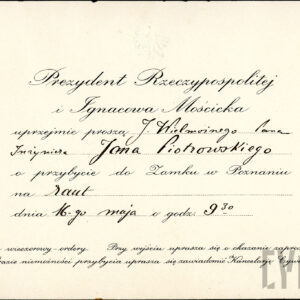 Prezydent Rzeczypospolitej
i Ignacowa Mościcka
uprzejmie proszą J. Wielmożnego Pana
Inżyniera Jana Piotrowskiego
o przybycie do Zamku w Poznaniu
na raut
dnia 16-go maja o godz. 9 30
wieczorowy-ordery. Przy wyjściu uprasza się o okazanie
razie niemożności przybycia uprasza się zawiadomić Kancelarję